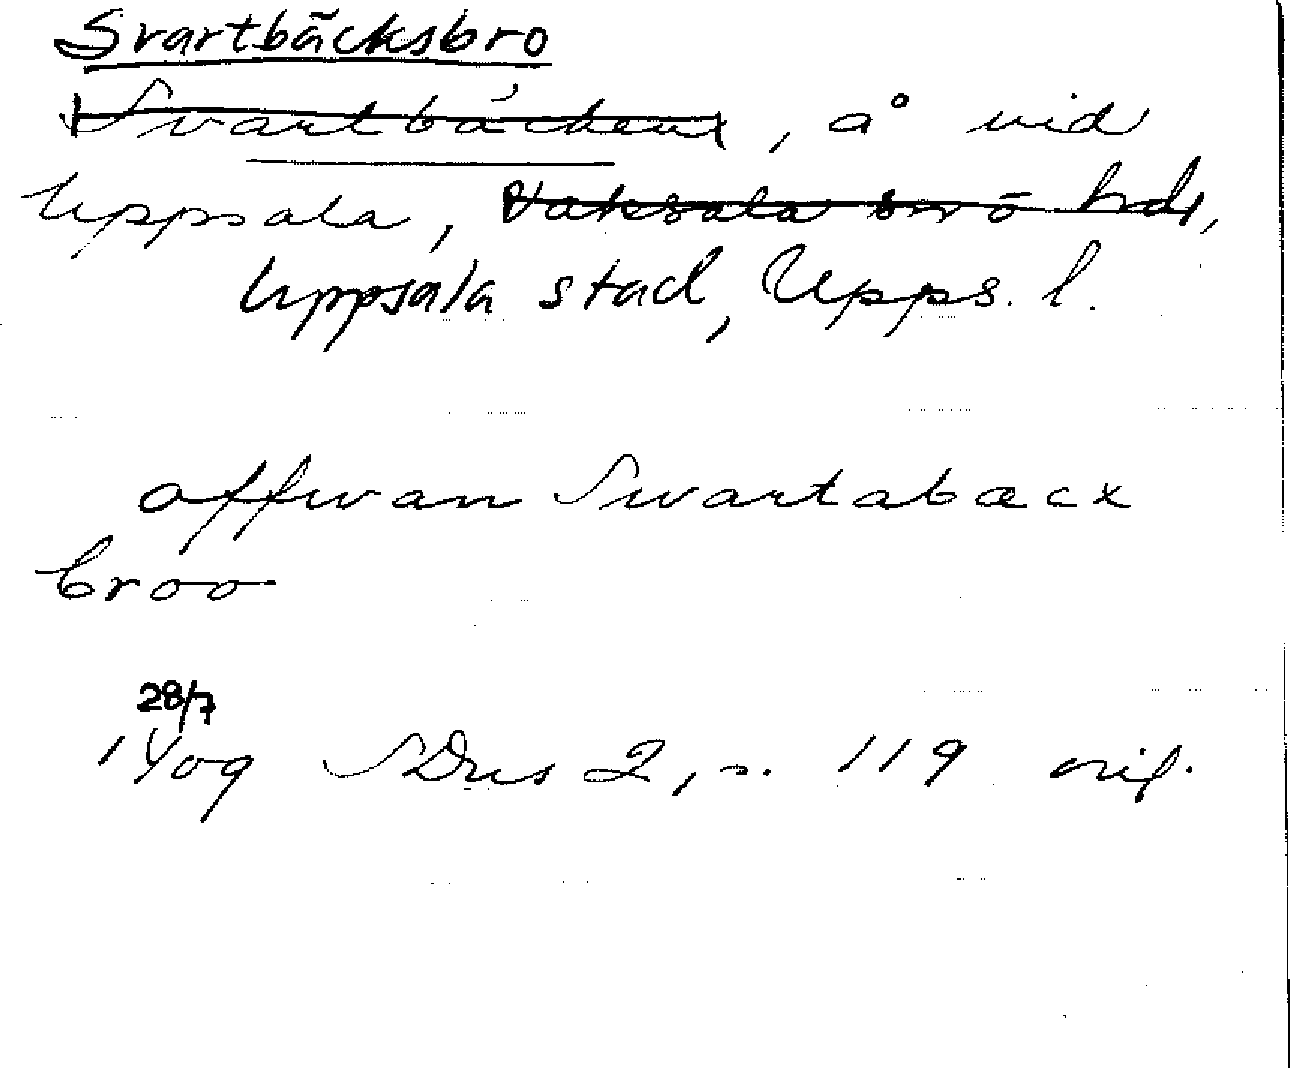 Svartbäcksbro
Svartbäcken, å vid
Uppsala, Vaksala sn o hd,
Uppsala stad, Upps. l.
offwan Swartabæcx
broo
28/7
1409 SDns 2, s. 119 orig.